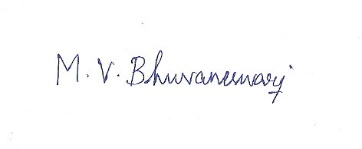 M. V. Bhuvaneswari